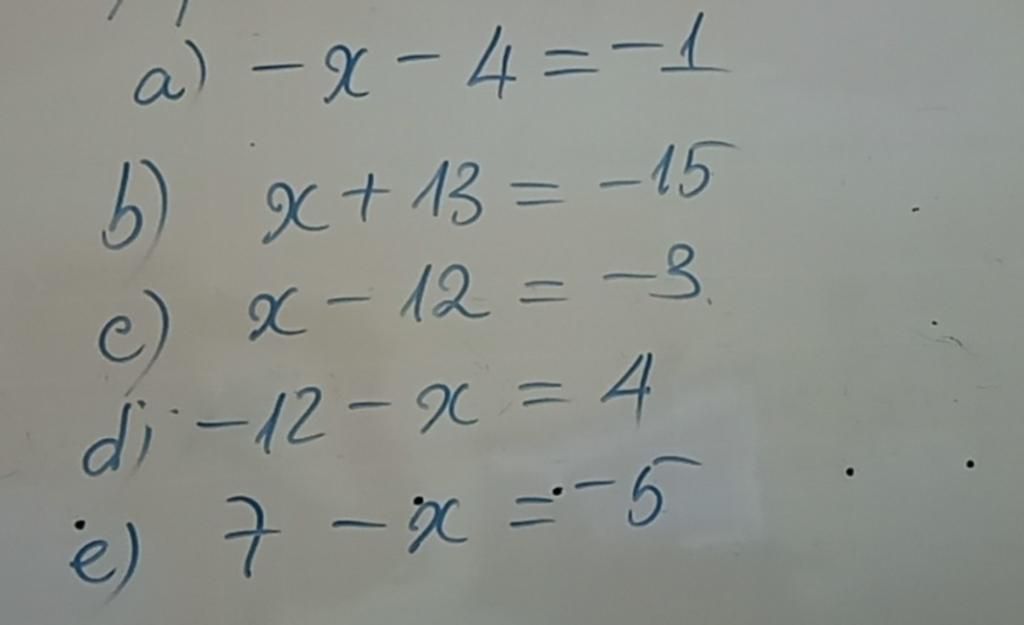 a) -x - 4 = -1
b) x + 13 = -15
c) x - 12 = -3
d) -12 - x = 4
e) 7 - x = -5